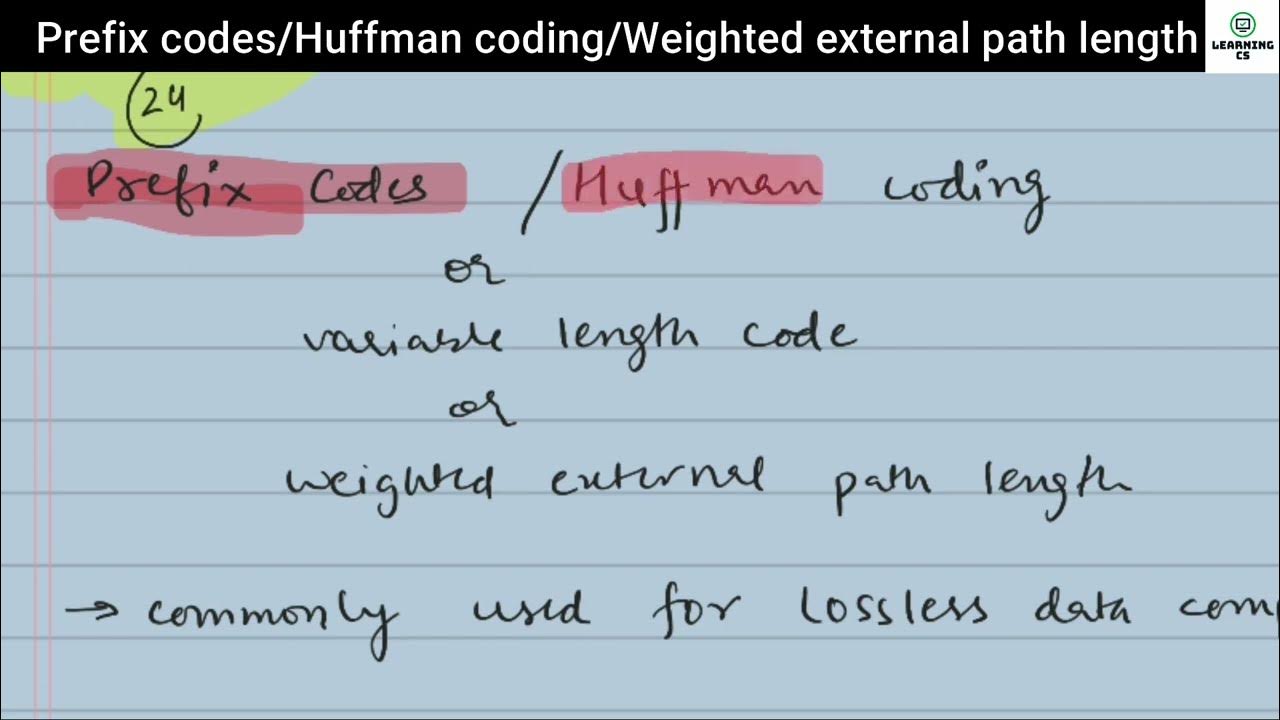 Prefix codes/Huffman coding/Weighted external path length
LEARNING
CS
24
Prefix Codes / Huffman coding
or
variable length code
or
weighted external path length
→ commonly used for lossless data com